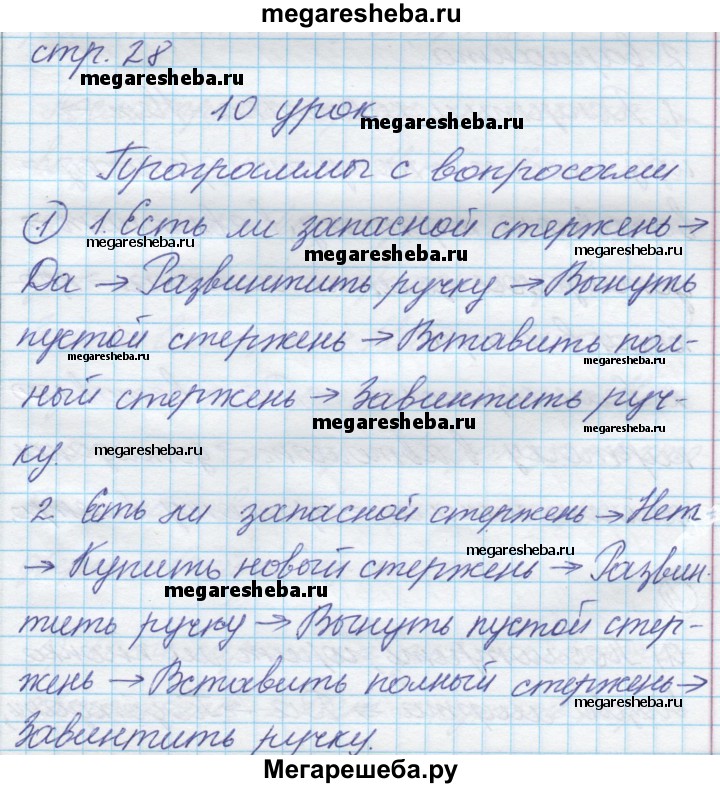 megaresheba.ru
стр. 28
megaresheba.ru
10 урок
megaresheba.ru
Программы с вопросами
① 1. Есть ли запасной стержень →
megaresheba.ru megaresheba.ru megaresheba.ru
Да → Развинтить ручку → Вынуть
megaresheba.ru megaresheba.ru
пустой стержень → Вставить пол-
megaresheba.ru megaresheba.ru
ный стержень → Завинтить руч-
megaresheba.ru megaresheba.ru
ку. megaresheba.ru
2 Есть ли запасной стержень → Нет
megaresheba.ru
→ Купить новый стержень → Развин-
megaresheba.ru
тить ручку → Вынуть пустой стер-
megaresheba.ru
жень → Вставить полный стержень →
megaresheba.ru
Завинтить ручку.
Мегарешеба.ру